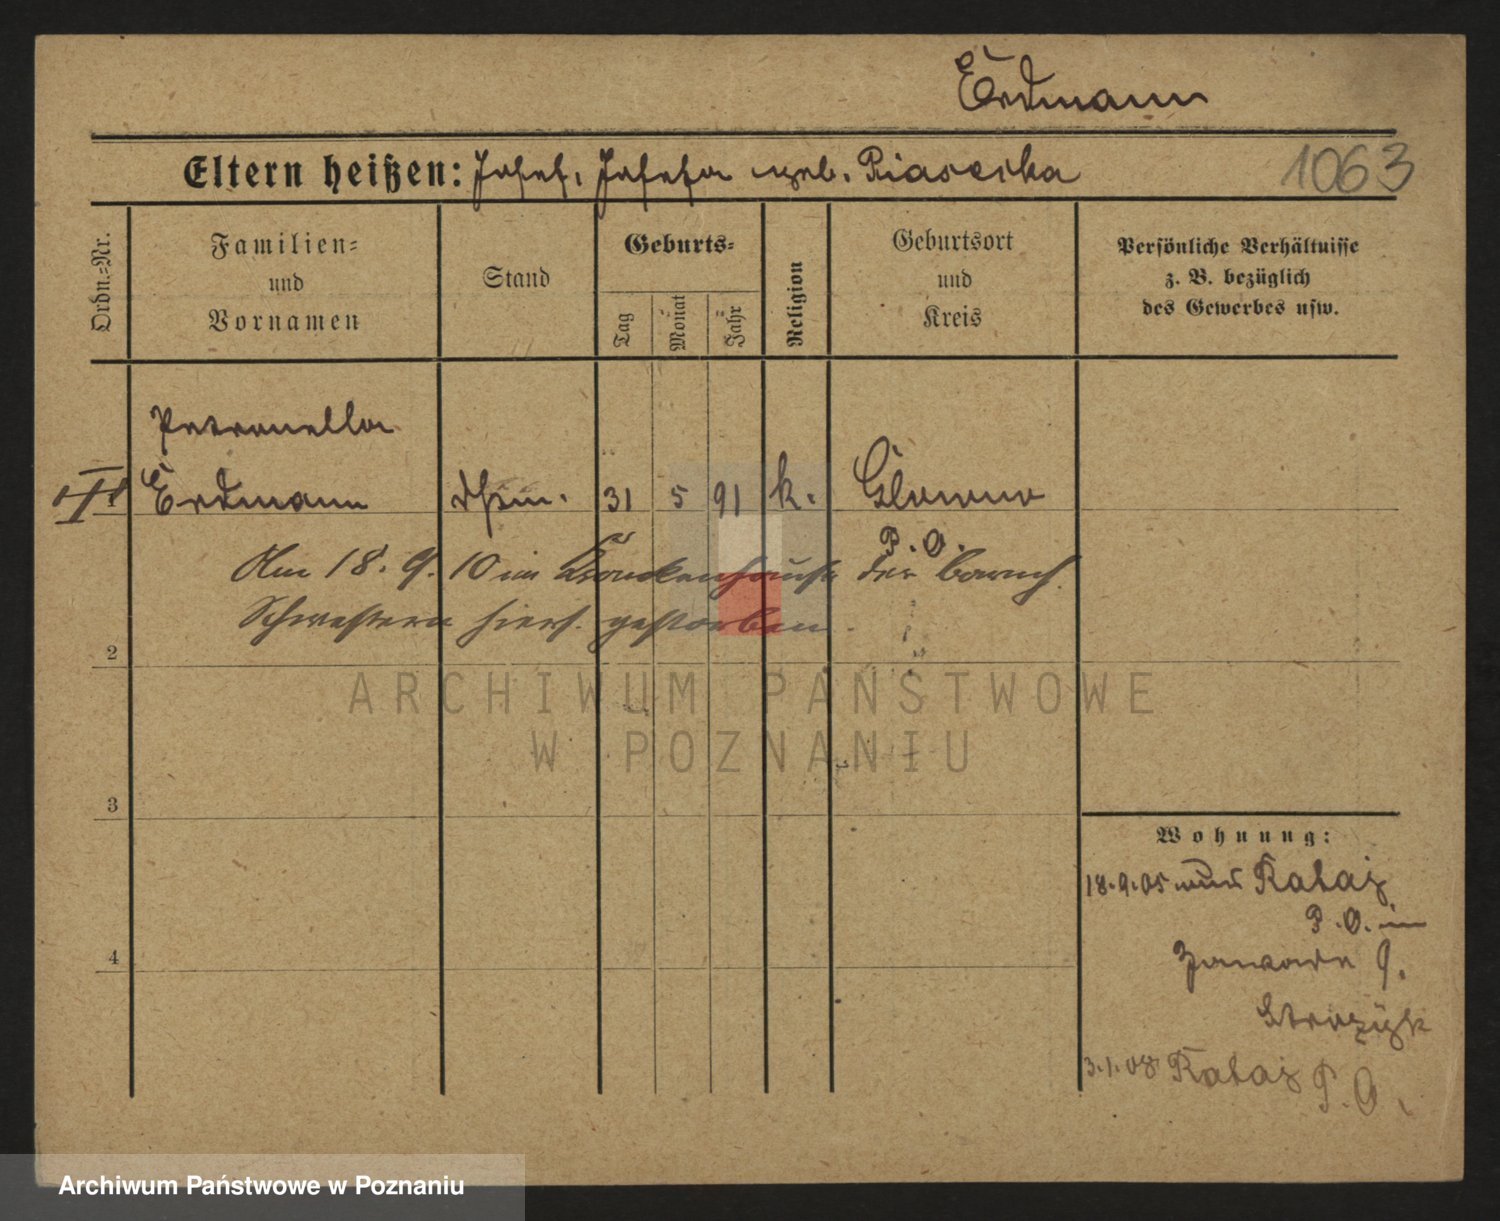 Erdmann
Eltern heißen: Josef, Josefa geb. Piasecka
1063
Ordn.-Nr.
Familien-
und
Vornamen
Stand
Geburts-
Tag
Monat
Jahr
Religion
Geburtsort
und
Kreis
Persönliche Verhältnisse
z. B. bezüglich
des Gewerbes usw.
Petronella
Erdmann
31 5 91 k. Glowno
P. O.
Am 18. 9. 10 im Krankenhause der barmh.
Schwestern hiers. gestorben.
2
3
4
Wohnung:
18.9.05 Rataj
P. O.
Zawade 9.
3.1.08 Rataj P. O.
ARCHIWUM PAŃSTWOWE
W POZNANIU
Archiwum Państwowe w Poznaniu